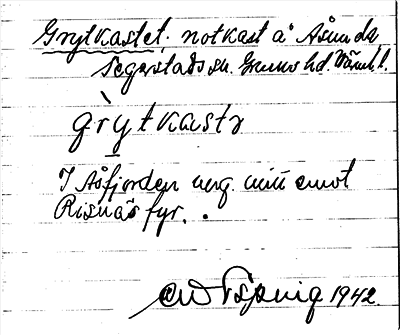 Grytkastet. notkast å Åsunda
Segerstads sn. Grums hd. Värml.
grytkastə
I Åsfjorden ung. mitt emot
Risnäs fyr.
1942.